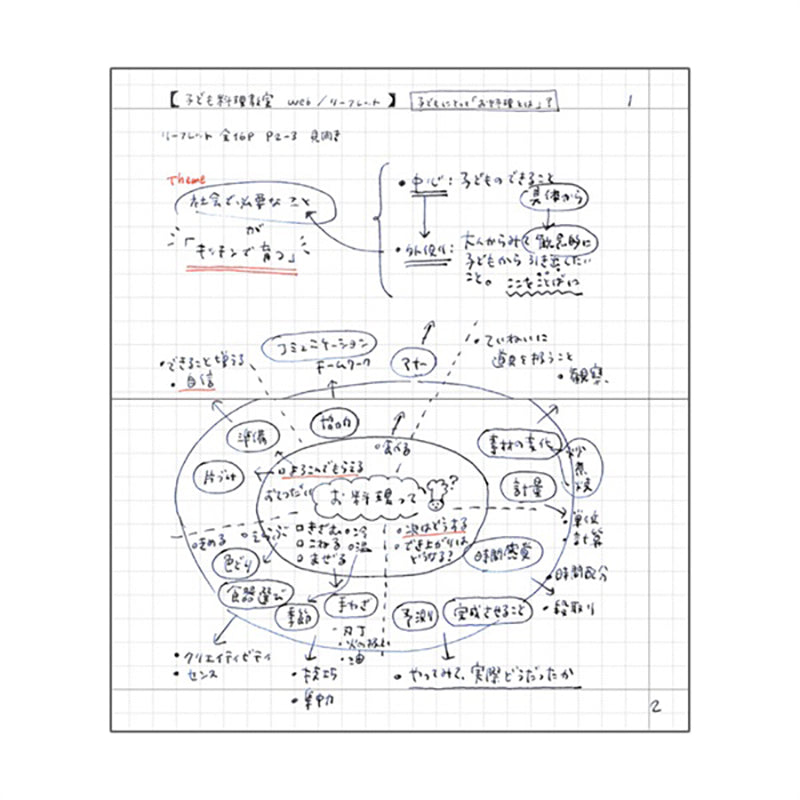 【子ども料理教室 web/リーフレット】 子どもにとって「お料理とは」? 1
リーフレット 全16P P2-3 見開き
Theme
社会で必要なこと
が
「キッチンで育つ」
・中心:子どものできること
具体から
・外側は:大人からみて
子どもから引き出したい
こと。 ここをことばに
コミュニケーション
チームワーク
マナー
・ていねいに
道具を扱うこと
・観察
・できること増える
・自信
準備
協力
食べる
素材の変化
炒
煮
片づけ
よろこんでもらえる
おてつだい
お料理って ?
計量
・単位
・計算
きめる
えらぶ
きざむ 冷
こねる 温
まぜる
次はどうする
でき上がりは
どうなる?
時間感覚
・時間配分
・段取り
色どり
食器選び
季節
手わざ
・刃丁
・火の扱い
・油
予測
完成させること
・クリエイティビティ
・センス
・技巧
・集中力
・やってみて、実際どうだったか
2